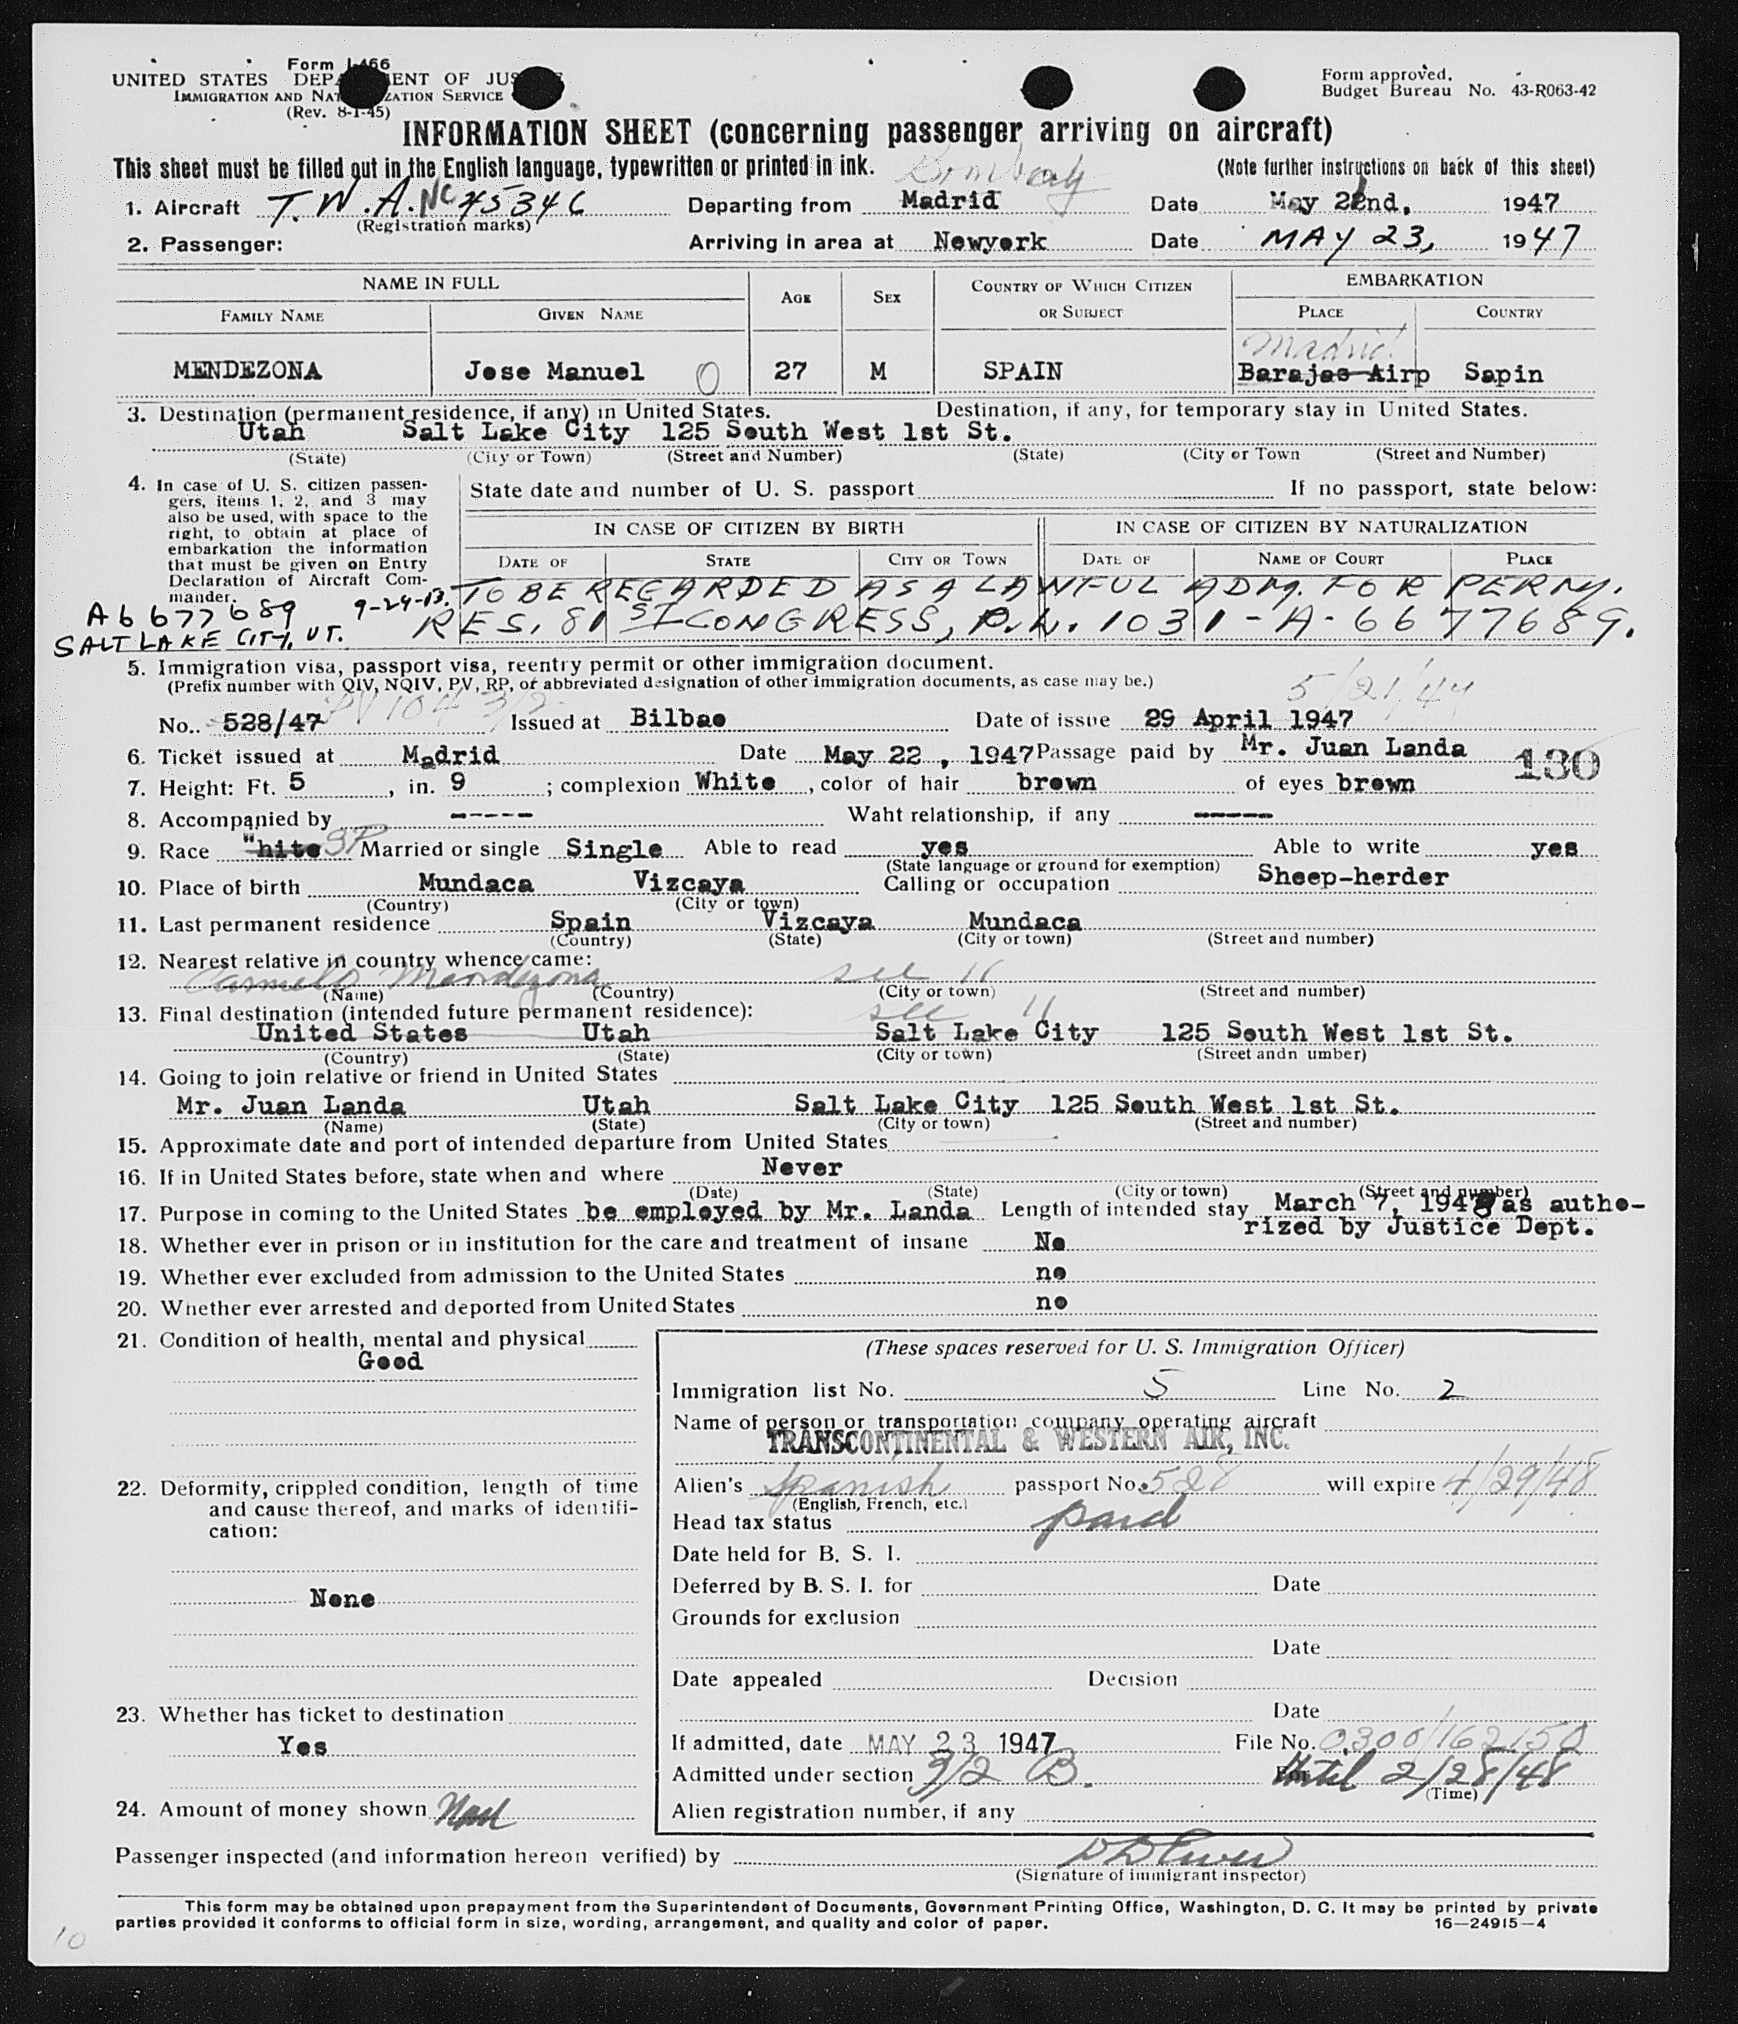 Form I-466
UNITED STATES DEPARTMENT OF JUSTICE
IMMIGRATION AND NATURALIZATION SERVICE
(Rev. 8-1-45)
Form approved.
Budget Bureau No. 43-R063-42
INFORMATION SHEET (concerning passenger arriving on aircraft)
This sheet must be filled out in the English language, typewritten or printed in ink. (Note further instructions on back of this sheet)
Bombay
1. Aircraft T.W.A. NC 45346 Departing from Madrid Date May 22nd, 1947
(Registration marks)
2. Passenger: Arriving in area at Newyork Date MAY 23, 1947
NAME IN FULL AGE SEX COUNTRY OF WHICH CITIZEN OR SUBJECT EMBARKATION
FAMILY NAME GIVEN NAME PLACE COUNTRY
Madrid
MENDEZONA Jose Manuel 0 27 M SPAIN Barajas Airp Sapin
3. Destination (permanent residence, if any) in United States. Destination, if any, for temporary stay in United States.
Utah Salt Lake City 125 South West 1st St.
(State) (City or Town) (Street and Number) (State) (City or Town (Street and Number)
4. In case of U. S. citizen passen-
gers, items 1, 2, and 3 may
also be used, with space to the
right, to obtain at place of
embarkation the information
that must be given on Entry
Declaration of Aircraft Com-
mander.
State date and number of U. S. passport If no passport, state below:
IN CASE OF CITIZEN BY BIRTH IN CASE OF CITIZEN BY NATURALIZATION
DATE OF STATE CITY OR TOWN DATE OF NAME OF COURT PLACE
TO BE REGARDED AS A LAWFUL ADM. FOR PERM.
A6677689 9-24-53.
RES. 81 ST CONGRESS, P.L. 1031-A-6677689.
SALT LAKE CITY, UT.
5. Immigration visa, passport visa, reentry permit or other immigration document.
(Prefix number with QIV, NQIV, PV, RP, or abbreviated designation of other immigration documents, as case may be.)
PV 1043/2 5/21/47
No.. 528/47 Issued at Bilbao Date of issue 29 April 1947
6. Ticket issued at Madrid Date May 22 , 1947 Passage paid by Mr. Juan Landa
130
7. Height: Ft. 5 , in. 9 ; complexion White , color of hair brown of eyes brown
8. Accompanied by ----- Waht relationship, if any -----
9. Race "hite SP Married or single Single Able to read yes Able to write yes
(State language or ground for exemption)
10. Place of birth Mundaca Vizcaya Calling or occupation Sheep-herder
(Country) (City or town)
11. Last permanent residence Spain Vizcaya Mundaca
(Country) (State) (City or town) (Street and number)
12. Nearest relative in country whence came:
Carmelo Mendezona see 11
(Name) (Country) (City or town) (Street and number)
13. Final destination (intended future permanent residence): see 11
United States Utah Salt Lake City 125 South West 1st St.
(Country) (State) (City or town) (Street andn umber)
14. Going to join relative or friend in United States
Mr. Juan Landa Utah Salt Lake City 125 South West 1st St.
(Name) (State) (City or town) (Street and number)
15. Approximate date and port of intended departure from United States
16. If in United States before, state when and where Never
(Date) (State) (City or town) (Street and number)
17. Purpose in coming to the United States be employed by Mr. Landa Length of intended stay March 7, 1948 as autho-
rized by Justice Dept.
18. Whether ever in prison or in institution for the care and treatment of insane No
19. Whether ever excluded from admission to the United States no
20. Whether ever arrested and deported from United States no
21. Condition of health, mental and physical
Good
22. Deformity, crippled condition, length of time
and cause thereof, and marks of identifi-
cation:
None
23. Whether has ticket to destination
Yes
24. Amount of money shown
(These spaces reserved for U. S. Immigration Officer)
Immigration list No. 5 Line No. 2
Name of person or transportation company operating aircraft
TRANSCONTINENTAL & WESTERN AIR, INC.
Alien's Spanish passport No. 528 will expire 4/29/48
(English, French, etc.)
Head tax status paid
Date held for B. S. I.
Deferred by B. S. I. for Date
Grounds for exclusion
Date
Date appealed Decision
Date
If admitted, date MAY 23 1947 File No. 0300/162150
Admitted under section 3/2 B. For Until 2/28/48
(Time)
Alien registration number, if any
Passenger inspected (and information hereon verified) by
(Signature of immigrant inspector)
This form may be obtained upon prepayment from the Superintendent of Documents, Government Printing Office, Washington, D. C. It may be printed by private
parties provided it conforms to official form in size, wording, arrangement, and quality and color of paper. 16—24915-4
10